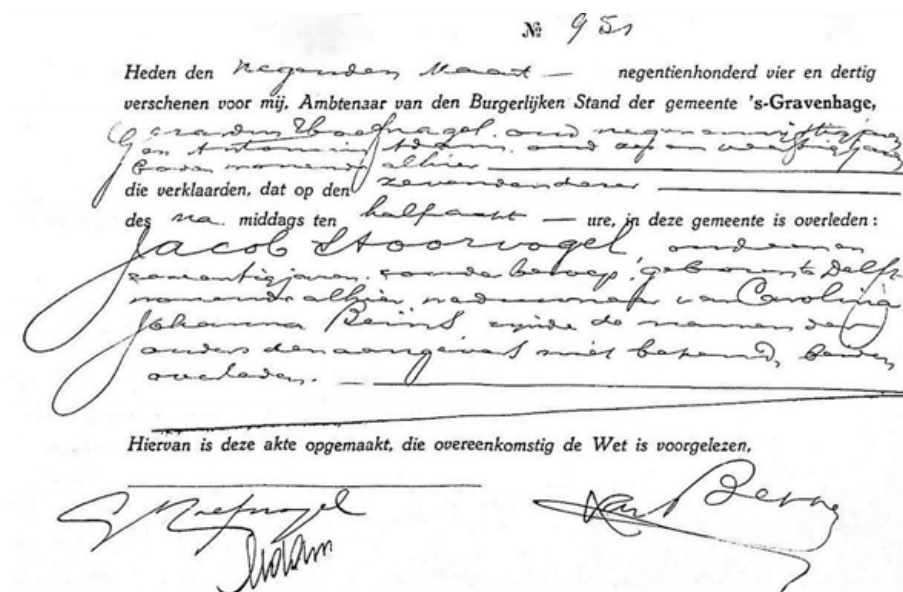 № 951
Heden den negenden Maart — negentienhonderd vier en dertig
verschenen voor mij, Ambtenaar van den Burgerlijken Stand der gemeente 's-Gravenhage,
Gerardus Hoefnagel, oud negenenvijftig jaren
en Antonius Adam, oud zes en veertig jaren
beiden wonende alhier
die verklaarden, dat op den zevenden dezer
des na middags ten half acht — ure, in deze gemeente is overleden :
Jacob Stoorvogel, oud een en
zeventig jaren, zonder beroep, geboren te Delft
wonende alhier, weduwnaar van Carolina
Johanna Beijns, zijnde de namen der
ouders den aangevers niet bekend, beiden
overleden. —
Hiervan is deze akte opgemaakt, die overeenkomstig de Wet is voorgelezen.
G Hoefnagel
Adam